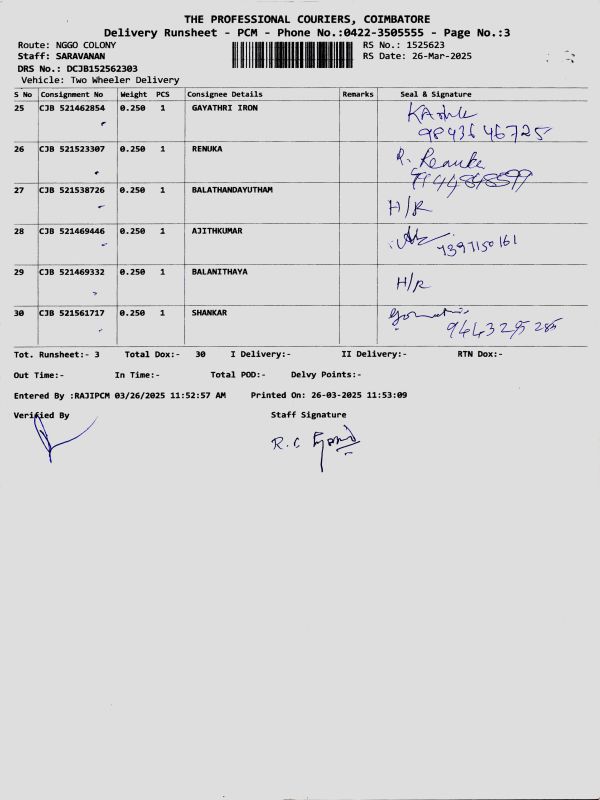 THE PROFESSIONAL COURIERS, COIMBATORE
Delivery Runsheet - PCM - Phone No.:0422-3505555 - Page No.:3
Route: NGGO COLONY RS No.: 1525623
Staff: SARAVANAN RS Date: 26-Mar-2025
DRS No.: DCJB152562303
Vehicle: Two Wheeler Delivery
S No Consignment No Weight PCS Consignee Details Remarks Seal & Signature
25 CJB 521462854 0.250 1 GAYATHRI IRON
9843646725
26 CJB 521523307 0.250 1 RENUKA R. Renuka
9944848599
27 CJB 521538726 0.250 1 BALATHANDAYUTHAM H/R
28 CJB 521469446 0.250 1 AJITHKUMAR 7397150161
29 CJB 521469332 0.250 1 BALANITHAYA H/R
30 CJB 521561717 0.250 1 SHANKAR
9443295285
Tot. Runsheet:- 3 Total Dox:- 30 I Delivery:- II Delivery:- RTN Dox:-
Out Time:- In Time:- Total POD:- Delvy Points:-
Entered By :RAJIPCM 03/26/2025 11:52:57 AM Printed On: 26-03-2025 11:53:09
Verified By Staff Signature
R.C